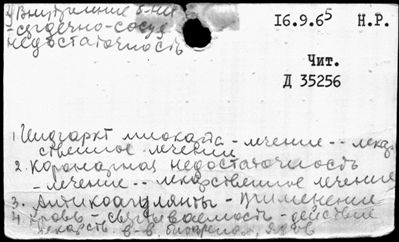 Внутренние б-ни
- сердечно-сосуд.
недостаточность
I6.9.65 Н.Р.
Чит.
Д 35256
1 Инфаркт миокарда - лечение -- лекар-
ственное лечение
2. Коронарная недостаточность
- лечение -- лекарственное лечение
3. Антикоагулянты - применение
4. Кровь - свертываемость - действие
лекарств. в-в, ядов